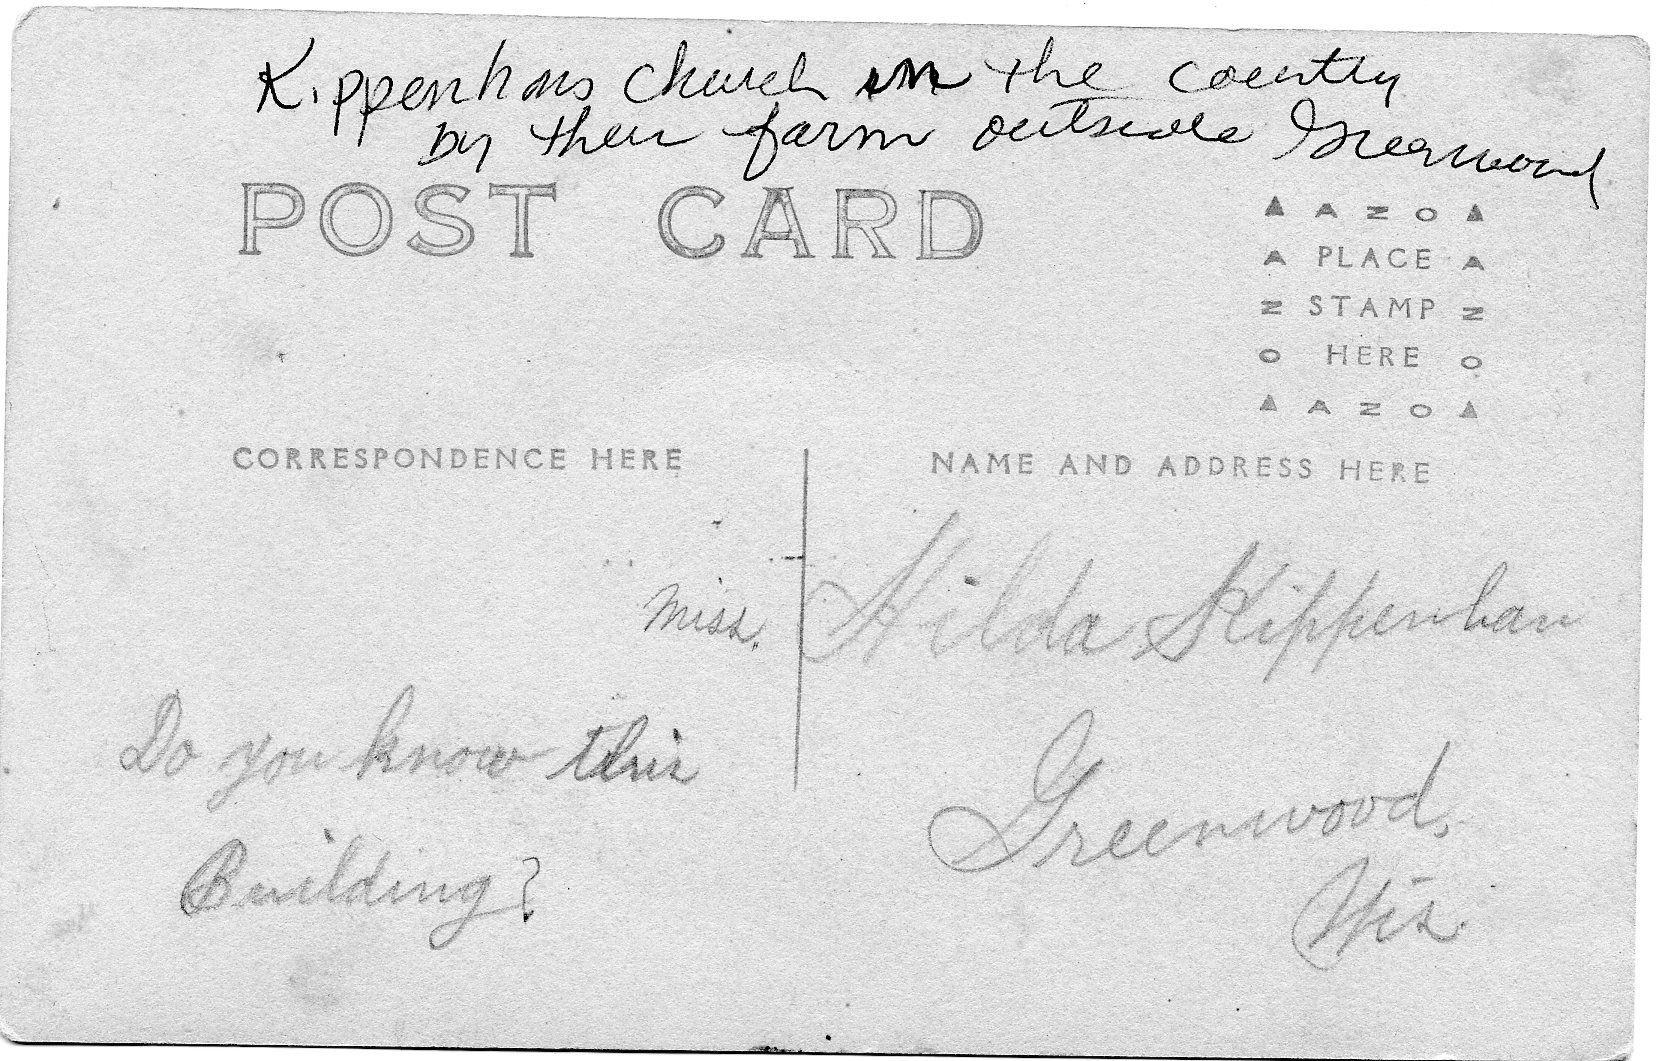 Kippenhans Church in the country
by their farm outside Greenwood
POST CARD
AZO
A PLACE A
N STAMP N
O HERE O
AZO
CORRESPONDENCE HERE
NAME AND ADDRESS HERE
Miss. Hilda Kippenhan
Do you know this
Building?
Greenwood,
Wis.